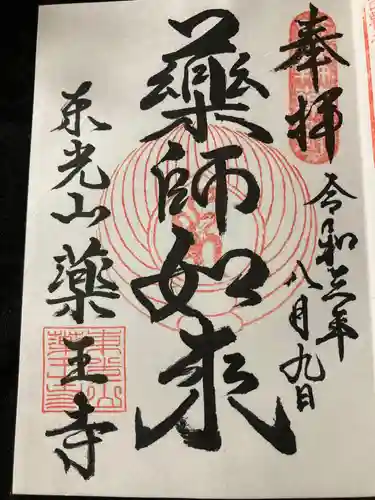 奉拝
令和三年
八月九日
藥師如来
東光山
薬王寺